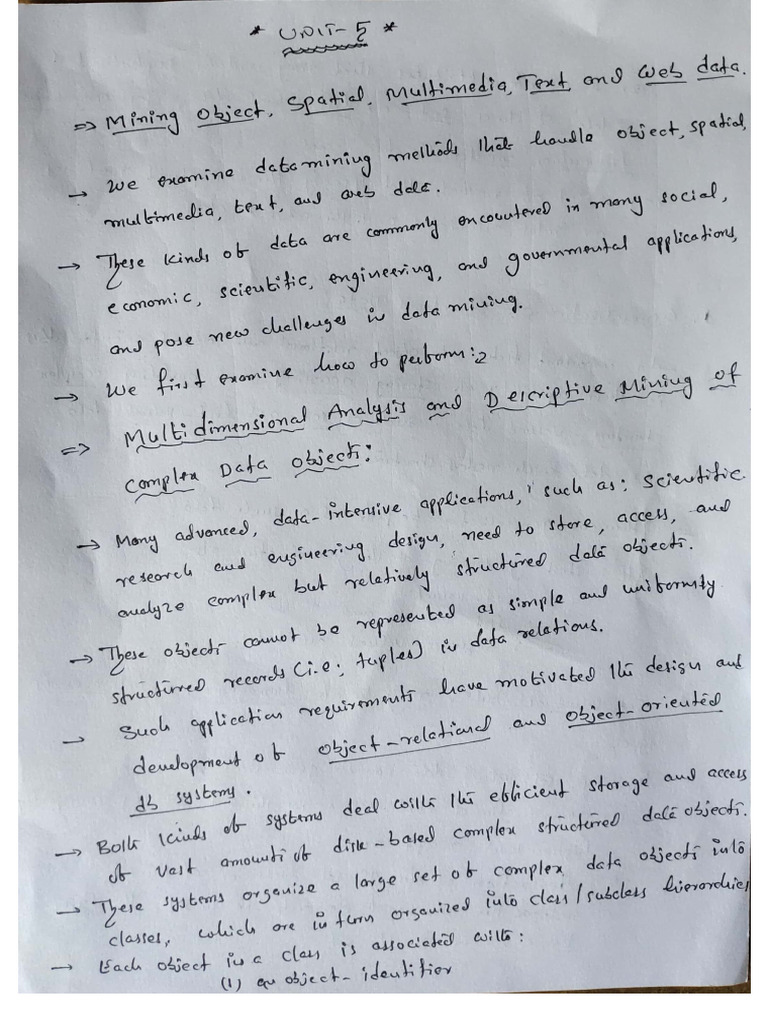 * UNIT-5 *
=> Mining Object, Spatial, Multimedia, Text, and Web data.
→ We examine data mining methods that handle object, spatial,
multimedia, text, and web data.
→ These kinds of data are commonly encountered in many social,
economic, scientific, engineering, and governmental applications,
and pose new challenges in data mining.
→ We first examine how to perform:
=> Multidimensional Analysis and Descriptive Mining of
Complex Data Objects:
→ Many advanced, data-intensive applications, such as: scientific
research and engineering design, need to store, access, and
analyze complex but relatively structured data objects.
→ These objects cannot be represented as simple and uniformity
structured records (i.e; tuples) in data relations.
→ Such application requirements have motivated the design and
development of object-relational and object-oriented
db systems.
→ Both kinds of systems deal with the efficient storage and access
of vast amounts of disk-based complex structured data objects.
→ These systems organize a large set of complex data objects into
classes, which are in turn organized into class/subclass hierarchies
→ Each object in a class is associated with:
(1) an object-identifier